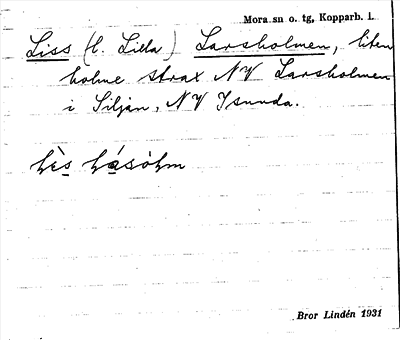 Mora sn o. tg, Kopparb. l.
Liss (l. Lilla) Larsholmen, liten
holme strax NV Larsholmen
i Siljan, NV Isunda.
lìs lásòlm
Bror Lindén 1931